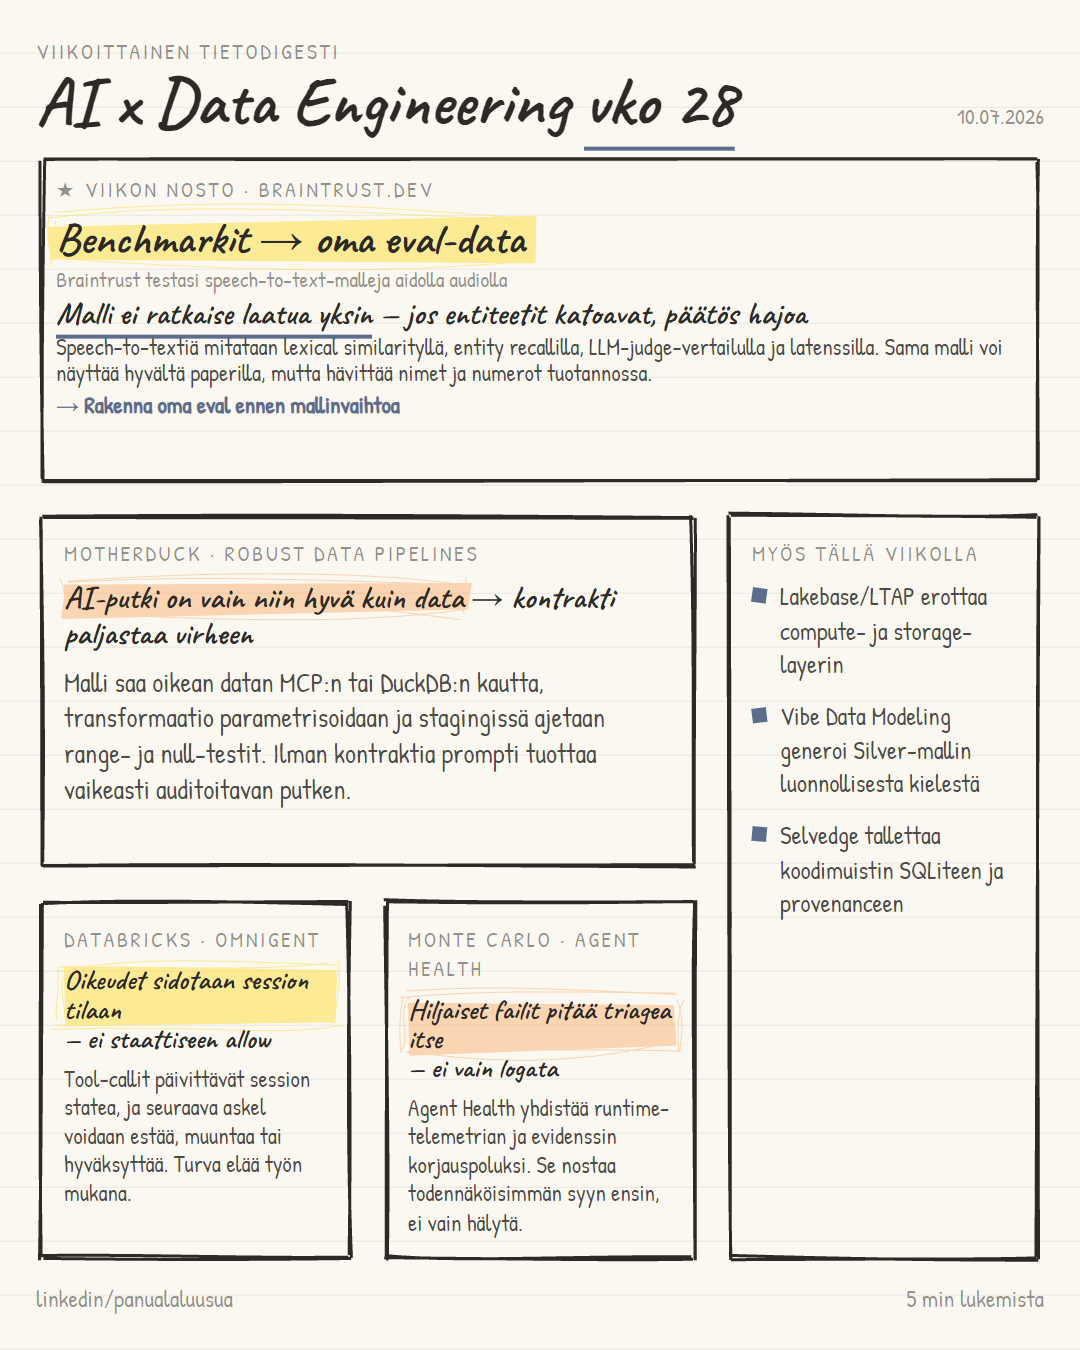 VIIKOITTAINEN TIETODIGESTI
AI x Data Engineering vko 28
10.07.2026
★ VIIKON NOSTO · BRAINTRUST.DEV
Benchmarkit → oma eval-data
Braintrust testasi speech-to-text-malleja aidolla audiolla
Malli ei ratkaise laatua yksin — jos entiteetit katoavat, päätös hajoa
Speech-to-textiä mitataan lexical similarityllä, entity recallilla, LLM-judge-vertailulla ja latenssilla. Sama malli voi
näyttää hyvältä paperilla, mutta hävittää nimet ja numerot tuotannossa.
→ Rakenna oma eval ennen mallinvaihtoa
MOTHERDUCK · ROBUST DATA PIPELINES
AI-putki on vain niin hyvä kuin data → kontrakti
paljastaa virheen
Malli saa oikean datan MCP:n tai DuckDB:n kautta,
transformaatio parametrisoidaan ja stagingissä ajetaan
range- ja null-testit. Ilman kontraktia prompti tuottaa
vaikeasti auditoitavan putken.
MYÖS TÄLLÄ VIIKOLLA
Lakebase/LTAP erottaa
compute- ja storage-
layerin
Vibe Data Modeling
generoi Silver-mallin
luonnollisesta kielestä
Selvedge tallettaa
koodimuistin SQLiteen ja
provenanceen
DATABRICKS · OMNIGENT
Oikeudet sidotaan session
tilaan
— ei staattiseen allow
Tool-callit päivittävät session
statea, ja seuraava askel
voidaan estää, muuntaa tai
hyväksyttää. Turva elää työn
mukana.
MONTE CARLO · AGENT
HEALTH
Hiljaiset failit pitää triagea
itse
— ei vain logata
Agent Health yhdistää runtime-
telemetrian ja evidenssin
korjauspoluksi. Se nostaa
todennäköisimmän syyn ensin,
ei vain hälytä.
linkedin/panualaluusua
5 min lukemista